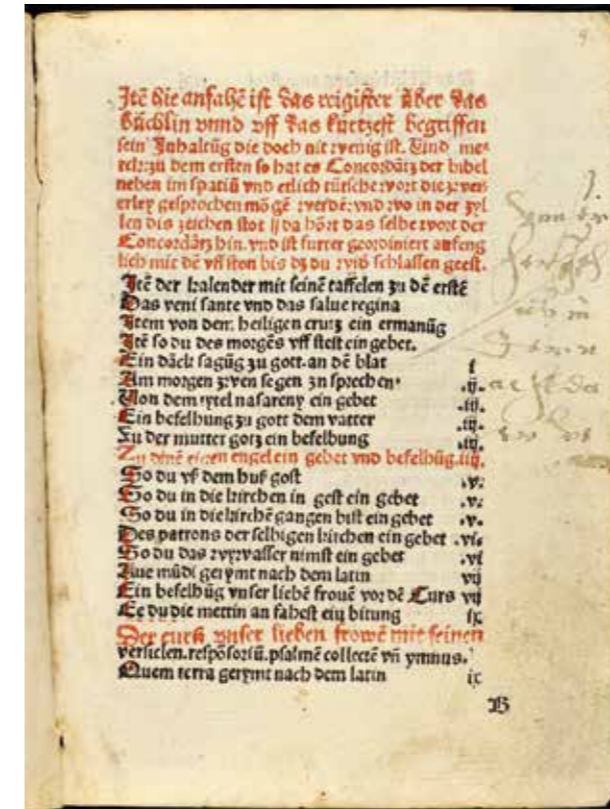 Itē die anfahē ist das reigister über das
büchlin vnnd vff das kürtzest begriffen
sein Inhaltūg die doch nit wenig ist. Vnd mer
zu dem ersten so hat es Concordātz der bibel
neben im spatiū vnd etlich tütsche wort die zwei
erley gesprochen mögē werdē: vnd wo in der zyl
len dis zeichen stot ‖ da hört das selbe wort der
Concordātz hin. vnd ist furter geordiniert anfeng
lich mit dē vff ston bis dz du wid schlaffen geest.
Itē der kalender mit seinē taffelen zu dē erstē
Das veni sante vnd das salue regina
Item von dem heiligen crutz ein ermanūg
Itē so du des morgēs vff steist ein gebet.
Ein dāck sagūg zu gott. an dē blat i
Am morgen zwen segen zu sprechen .ij.
Von dem tytel nasareny ein gebet .iij.
Ein befelhung zu gott dem vatter .iij.
Zu der mutter gotz ein befelhung .iij.
Zu dēnē eigen engel ein gebet vnd befelhūg. iiij.
So du vß dem huß gost .v.
So du in die kirchen in gest ein gebet .v.
So du in die kirchē gangen bist ein gebet .v.
Des patrons der selbigen kirchen ein gebet .vi.
So du das wywasser nimst ein gebet .vi
Aue mūdi gerymt nach dem latin vij
Ein befelhūg vnser liebē frouē vor dē Curs vij
Ee du die mettin an fahest ein bitung ix
Der curß vnser lieben frowē mit seinen
versiclen. respōsoriū. psalmē collectē vn̄ ymnus.
Quem terra gerymt nach dem latin ix
B